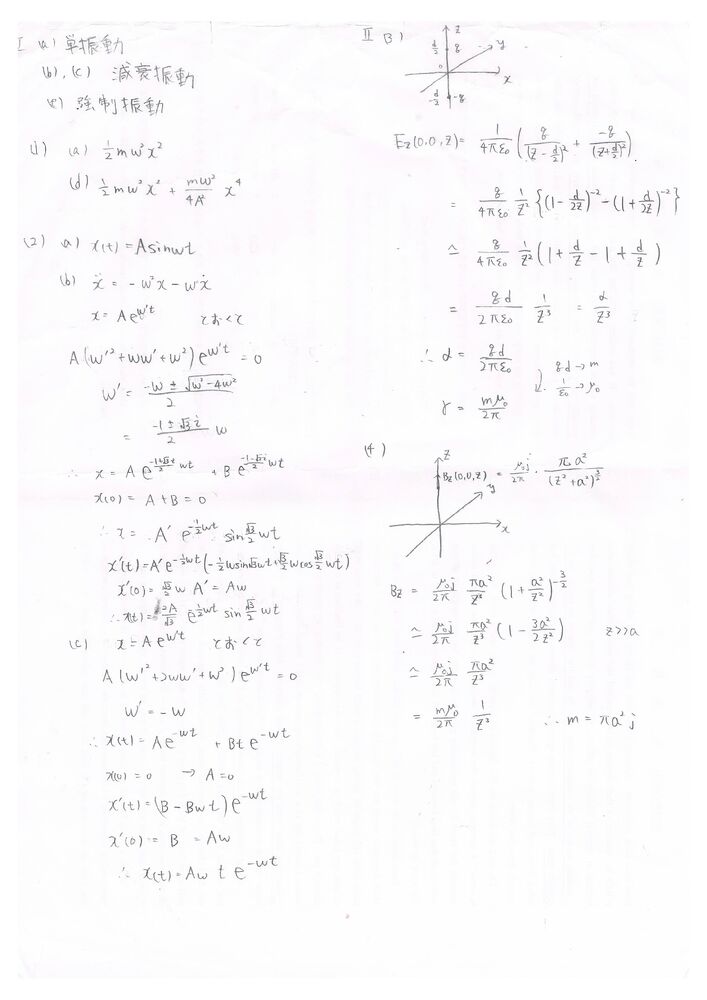 I (a) 単振動
(b), (c) 減衰振動
(e) 強制振動
(1) (a) ½mω²x²
(d) ½mω²x² + mω²/4A² x⁴
(2) a) x(t) = A sinωt
(b) ẍ = -ω²x - ωẋ
x = Ae^{ω't} とおくて
A(ω'² + ωω' + ω²)e^{ω't} = 0
ω' = (-ω ± √(ω² - 4ω²))/2
= (-1 ± √3 i)/2 ω
∴ x = A e^{(-1+√3i)/2 ωt} + B e^{(-1-√3i)/2 ωt}
x(0) = A + B = 0
∴ x = A' e^{-½ωt} sin √3/2 ωt
x'(t) = A' e^{-½ωt}(-½ω sin √3/2 ωt + √3/2 ω cos √3/2 ωt)
x'(0) = √3/2 ω A' = Aω
∴ x(t) = 2A/√3 e^{-½ωt} sin √3/2 ωt
(c) x = Ae^{ω't} とおくて
A(ω'² + 2ωω' + ω²)e^{ω't} = 0
ω' = -ω
∴ x(t) = Ae^{-ωt} + Bt e^{-ωt}
x(0) = 0 → A = 0
x'(t) = (B - Bωt)e^{-ωt}
x'(0) = B = Aω
∴ x(t) = Aω t e^{-ωt}
II (3)
z
d/2 q
y
0
x
-d/2 -q
E_z(0,0,z) = 1/4πε₀ (q/(z - d/2)² + -q/(z + d/2)²)
= q/4πε₀ 1/z² {(1 - d/2z)^{-2} - (1 + d/2z)^{-2}}
≃ q/4πε₀ 1/z² (1 + d/z - 1 + d/z)
= qd/2πε₀ 1/z³ = α/z³
∴ α = qd/2πε₀
qd → m
1/ε₀ → μ₀
γ = mμ₀/2π
(4)
z
B_z(0,0,z) = μ₀j/2π · πa²/(z² + a²)^{3/2}
y
x
B_z = μ₀j/2π πa²/z³ (1 + a²/z²)^{-3/2}
≃ μ₀j/2π πa²/z³ (1 - 3a²/2z²) z>>a
≃ μ₀j/2π πa²/z³
= mμ₀/2π 1/z³ ∴ m = πa²j